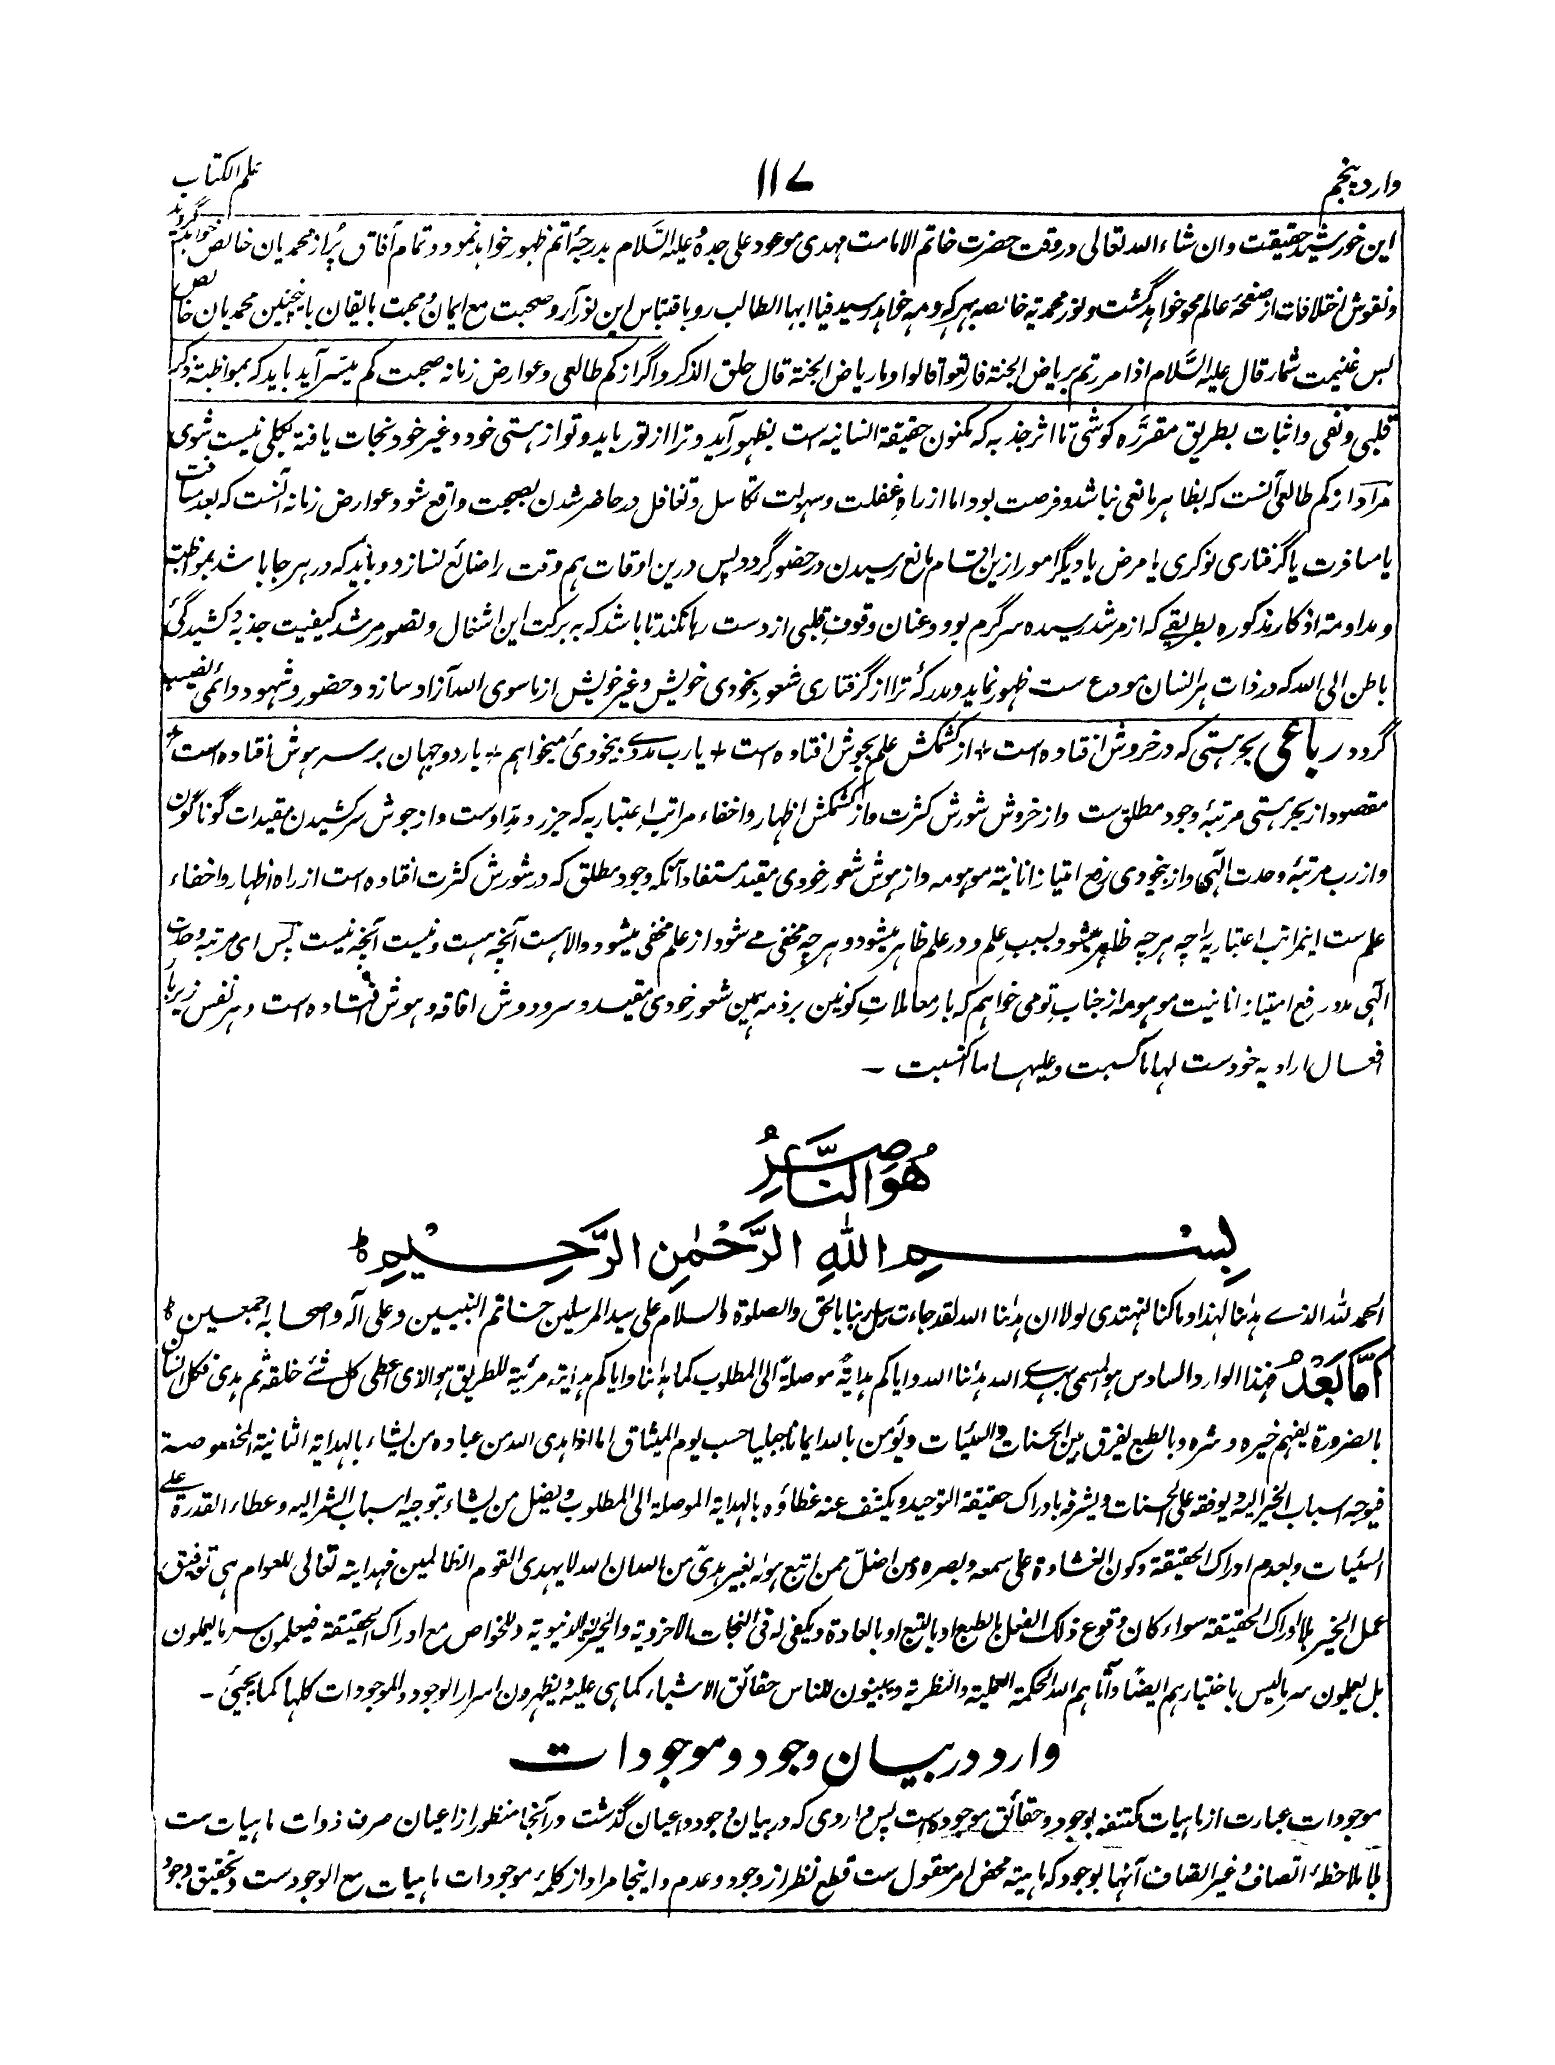 وارد پنجم
۱۱۷
علم الکتاب
این خورشید حقیقت و ان شاء الله تعالی در وقت حضرت خاتم الامامت مهدی موعود علی جده و علیه السلام بدرجهٔ اتم ظهور خواهد نمود و تمام آفاق پُر از محمدیان خالص خواهند گردید
و نقوش اختلافات از صفحهٔ عالم محو خواهد گشت و نور محمدیه خالصه بهر که و مه خواهد رسید فیا ایها الطالب رو باقتباس این نور آر و صحبت مع ایمان و محبت با یقان با اینچنین محمدیان خالص
بس غنیمت شمار قال علیه السَّلام اذا مررتم بریاض الجنة فارتعوا قالوا و ما ریاض الجنة قال حلق الذکر و اگر از کم طالعی و عوارض زمانه صحبت کم میسّر آید باید که بمواظبة ذکر
قلبی و نفی و اثبات بطریق مقرّره کوشی تا اثر جذبه که مکنون حقیقة انسانیه است بظهور آید و ترا از تو رباید و تو از هستی خود و غیر خود نجات یافته بکلی نیست شوی
مراد از کم طالعی آنست که بظاهر مانعی نباشد و فرصت بود اما از راه غفلت و سهولت تکاسل و تغافل در حاضر شدن بصحبت واقع شود و عوارض زمانه آنست که بعد مسافت
یا مسافرت یا گرفتاری نوکری یا مرض یا دیگر امور ازین اقسام مانع رسیدن در حضور گردد پس درین اوقات هم وقت را ضائع نسازد و باید که در هر جا باشد بمواظبت
و مداومة اذکار مذکوره بطریقے که از مرشد رسیده سرگرم بود و عنان وقوف قلبی از دست رها نکند تا باشد که به برکت این اشغال و تصور مرشد کیفیت جذبه و کشیدگی
باطن الی الله که در ذات هر انسان مودع ست ظهور نماید و مدرکهٔ ترا از گرفتاری شعور بخودی خویش و غیر خویش از ماسوی الله آزاد سازد و حضور و شهود دائمی نصیب
گردد رباعی بحر هستی که در خروش افتاده است + از کشمکش علم بجوش افتاده ست + یا رب مددے بیخودی میخواهم + بار دو جهان بر سر هوش افتاده است +
مقصود از بحر هستی مرتبهٔ وجود مطلق ست و از خروش شورش کثرت و از کشمکش اظهار و اخفاء مراتب اعتباریه که جزر و مد اوست و از جوش سرکشیدن مقیدات گوناگون
و از رب مرتبهٔ وحدت الٰهی و از بیخودی رفع امتیاز انانیة موهومه و از هوش شعور خودی مقید مستفاد آنکه وجود مطلق که در شورش کثرت افتاده است از راه اظهار و اخفاء
علم ست اینمراتب اعتباریه را چه هر چه ظاهر میشود بسبب علم و در علم ظاهر میشود و هر چه مخفی مے شود از علم مخفی میشود والا هست آنچه هست و نیست آنچه نیست پس ای مرتبه وحدت
الٰهی مدد رفع امتیاز انانیت موهومه از جناب تو می خواهم که بار معاملات کونین بر ذمه همین شعور خودی مقید و سر و دوش افاقه و هوش افتاده است و هر نفس زیر بار
افعال ارادیه خودست لها ما کسبت و علیها ما اکتسبت ـ
هُوَ النَّاصِرُ
بِسْمِ اللهِ الرَّحْمٰنِ الرَّحِیْمِ ط
الحمد لله الذے هدٰنا لهذا و ما کنا لنهتدی لولا ان هدٰنا الله لقد جاءت رسل ربنا بالحق والصلوة والسلام علی سید المرسلین خاتم النبیین و علی آله و اصحابه اجمعین ط
اَمَّا بَعْدُ فهذا الوارد السادس هو المسمی بهدے الله هدٰنا الله و ایاکم هدایة موصلة الی المطلوب کما هدٰنا و ایاکم هدایة مرئیة للطریق هو الذی اعطی کل شئے خلقه ثم هدی فکل انسان
بالضرورة یفهم خیره و شره و بالطبع یفرق بین الحسنات والسئیات و یؤمن بالله ایمانا جبلیا حسب یوم المیثاق اما اذا هدی الله من عباده من یشاء بالهدایة الثانیة المخصوصة
فیوجه اسباب الخیر الیه و یوفقه علی الحسنات و یشرفه بادراک حقیقة التوحید و یکشف عنه غطاؤه بالهدایة الموصلة الی المطلوب و یضل من یشاء بتوجیه اسباب الشر الیه و عطاء القدرة علے
السئیات و بعدم ادراک الحقیقة و کون الغشاوة علی سمعه و بصره و من اضل ممن اتبع هوٰه بغیر هدیً من الله ان الله لا یهدی القوم الظالمین فهدایته تعالی للعوام هی توفیق
عمل الخیر بلا ادراک الحقیقة سواء کان وقوع ذلک الفعل بالطبع او بالتبع او بالعادة و یکفی له فی النجات الاخرویة والخیریة الدنیویة و للخواص مع ادراک الحقیقة فیعلمون سر ما یعملون
بل یعلمون سر ما لیس باختیارهم ایضاً و آتاهم الله الحکمة العملیة والنظریة و یبینون للناس حقائق الاشیاء کما هی علیه و یظهرون اسرار الوجود والموجودات کلها کما یجئ ـ
وارد در بیان وجود و موجودات
موجودات عبارت از ماهیات مکتنفه بوجود و حقائق موجوده است پس واردی که در بیان وجود و اعیان گذشت در آنجا منظور از اعیان صرف ذوات ماهیات ست
بلا ملاحظهٔ اتصاف و غیر اتصاف آنها بوجود که ماهیة محض امر معقول ست قطع نظر از وجود و عدم و اینجا مراد از کلمهٔ موجودات ماهیات مع الوجودست و تحقیق وجود